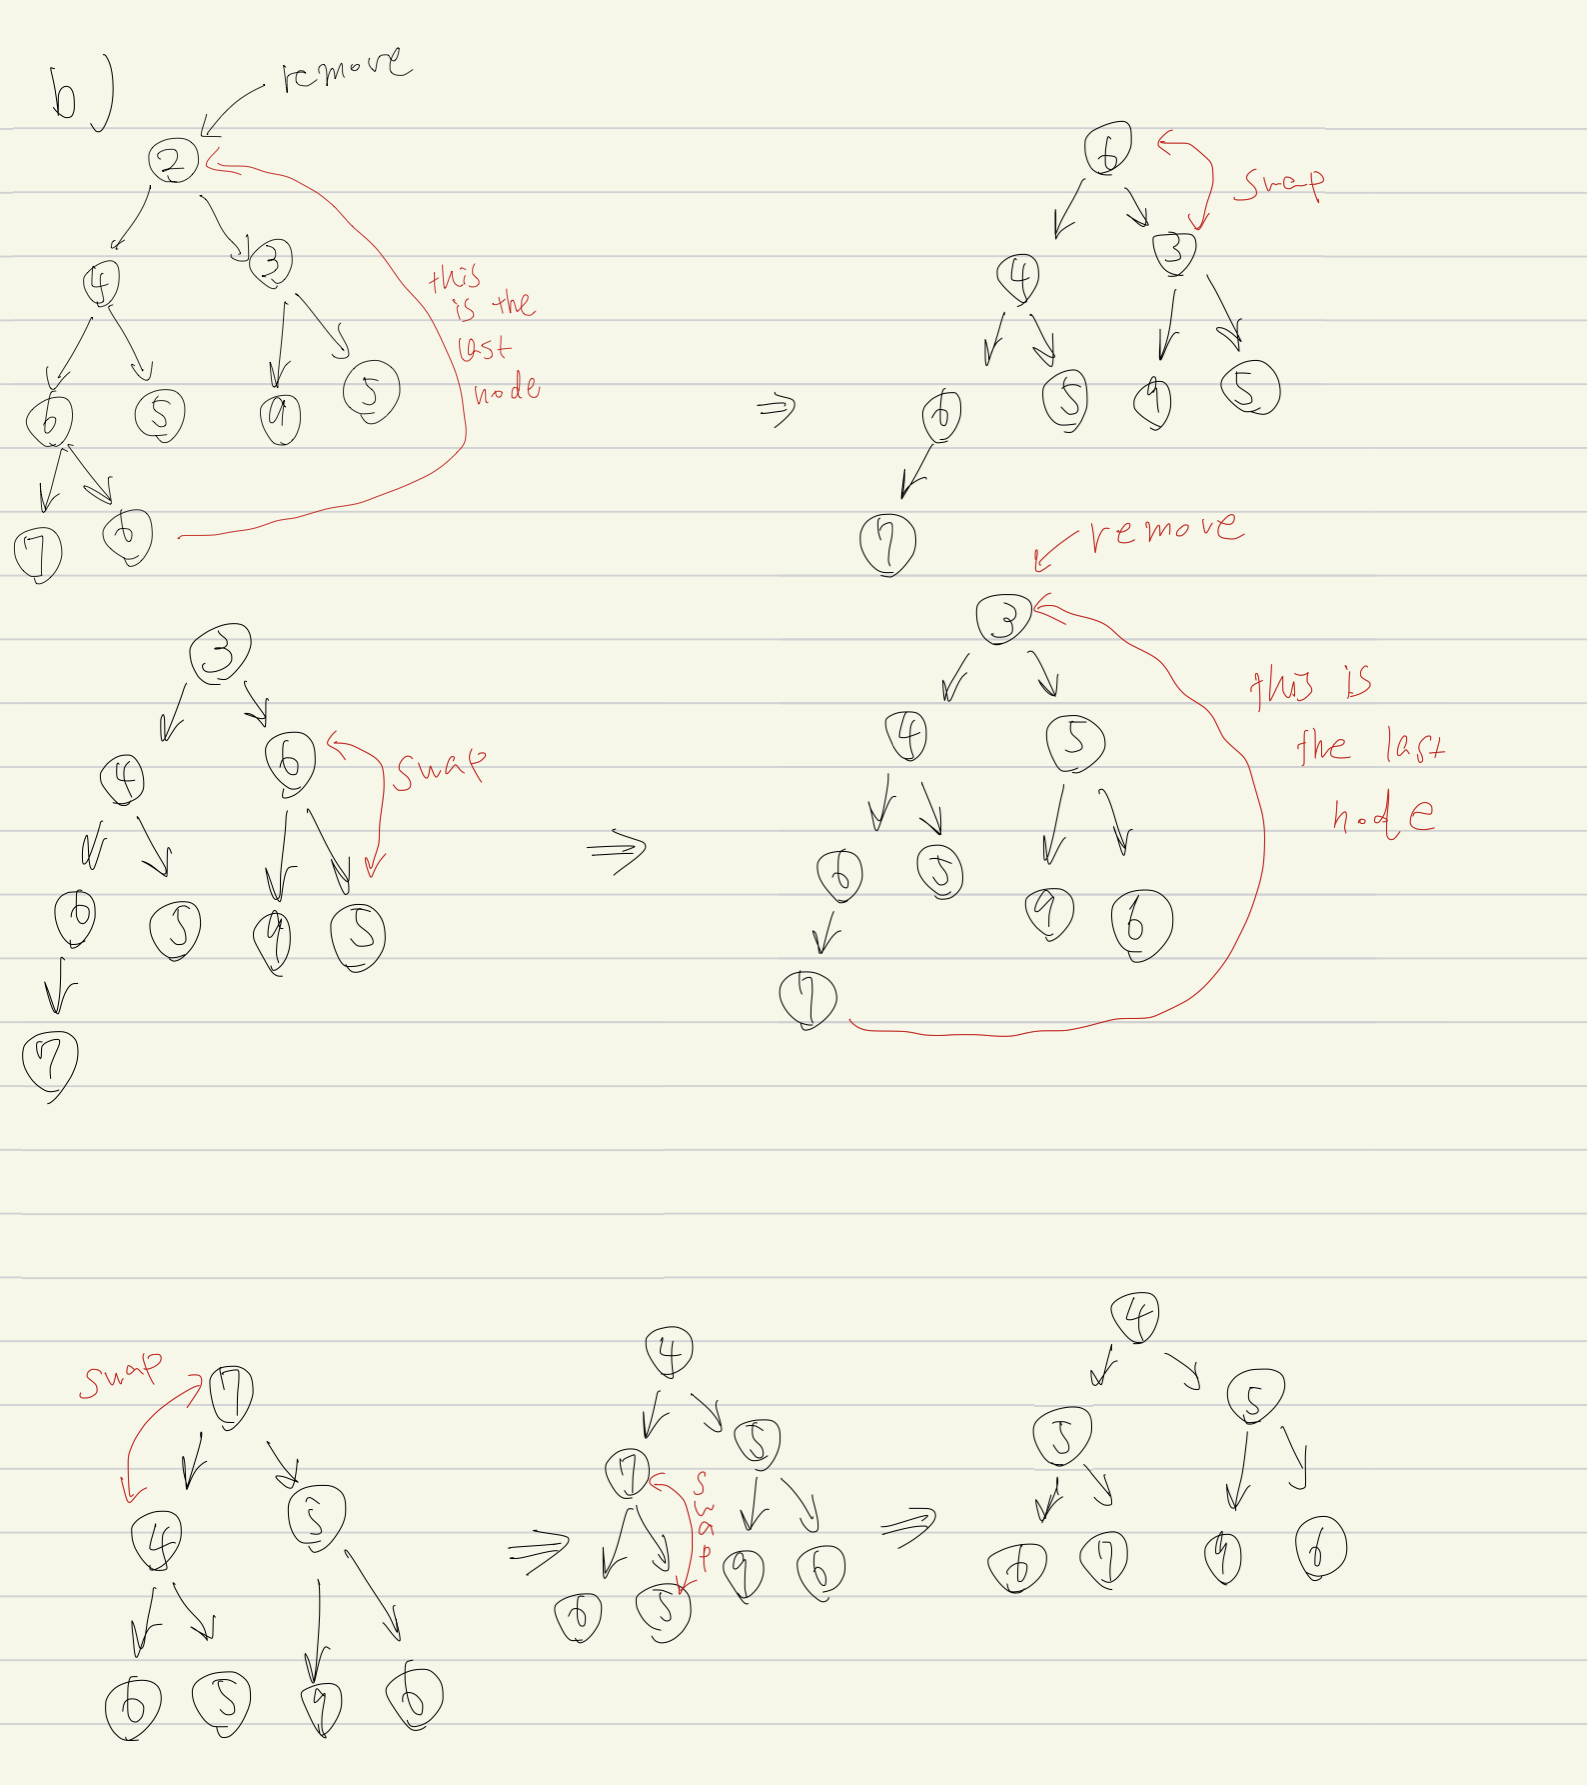 b)
remove
2
4 3
6 5 9 5
7 6
this
is the
last
node
⇒
6
swap
4 3
6 5 9 5
7
3
4 6
swap
6 5 9 5
7
⇒
remove
3
4 5
6 5 9 6
7
this is
the last
node
swap
7
4 5
6 5 9 6
⇒
4
7 5
swap
6 5 9 6
⇒
4
5 5
6 7 9 6